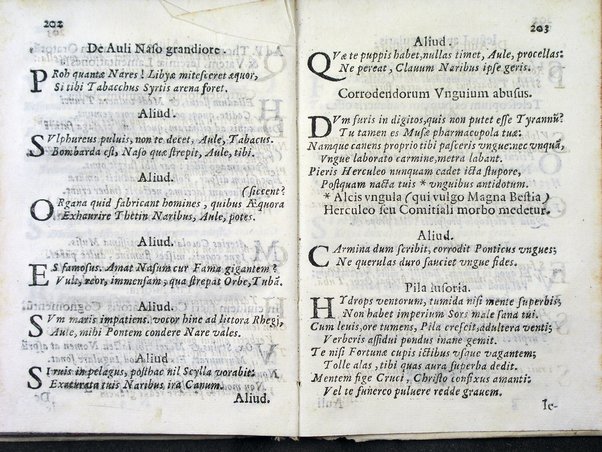 202
De Auli Naso grandiore.
PRoh quantæ Nares! Libyæ mitesceret æquor,
Si tibi Tabacchus Syrtis arena foret.
Aliud.
SVlphureus puluis, non te decet, Aule, Tabacus.
Bombarda est, Naso quæ strepit, Aule, tibi.
Aliud.
(siccent?
ORgana quid fabricant homines, quibus Æquora
Exhaurire Thetin Naribus, Aule, potes.
Aliud.
ES famosus. Amat Nasum cur Fama gigantem?
Vult, reor, immensam, qua strepat Orbe, Tubã.
Aliud.
SVm maris impatiens. vocor hinc ad littora Rhegi,
Aule, mihi Pontem condere Nare vales.
Aliud
SI ruis in pelagus, posthac nil Scylla vorabit:
Exaturata tuis Naribus ira Canum.
Aliud.
203
Aliud.
QVæ te puppis habet, nullas timet, Aule, procellas:
Ne pereat, Clauum Naribus ipse geris.
Corrodendorum Vnguium abusus.
DVm furis in digitos, quis non putet esse Tyrannũ?
Tu tamen es Musæ pharmacopola tuæ:
Namque canens proprio tibi pasceris vngue: nec vnquã,
Vngue laborato carmine, metra labant.
Pieris Herculeo nunquam cadet icta stupore,
Postquam nacta tuis * vnguibus antidotum.
* Alcis vngula (qui vulgo Magna Bestia)
Herculeo seu Comitiali morbo medetur.
Aliud.
CArmina dum scribit, corrodit Ponticus vngues;
Ne querulas duro sauciet vngue fides.
Pila lusoria.
HYdrops ventorum, tumida nisi mente superbis;
Non habet imperium Sors male sana tui.
Cum leuis, ore tumens, Pila crescit, adultera ventis;
Verberis assidui pondus inane gemit.
Te nisi Fortunæ cupis ictibus vsque vagantem;
Tolle alas, tibi quas aura superba dedit.
Mentem fige Cruci, Christo confixus amanti:
Vel te funereo puluere redde grauem.
Ic-